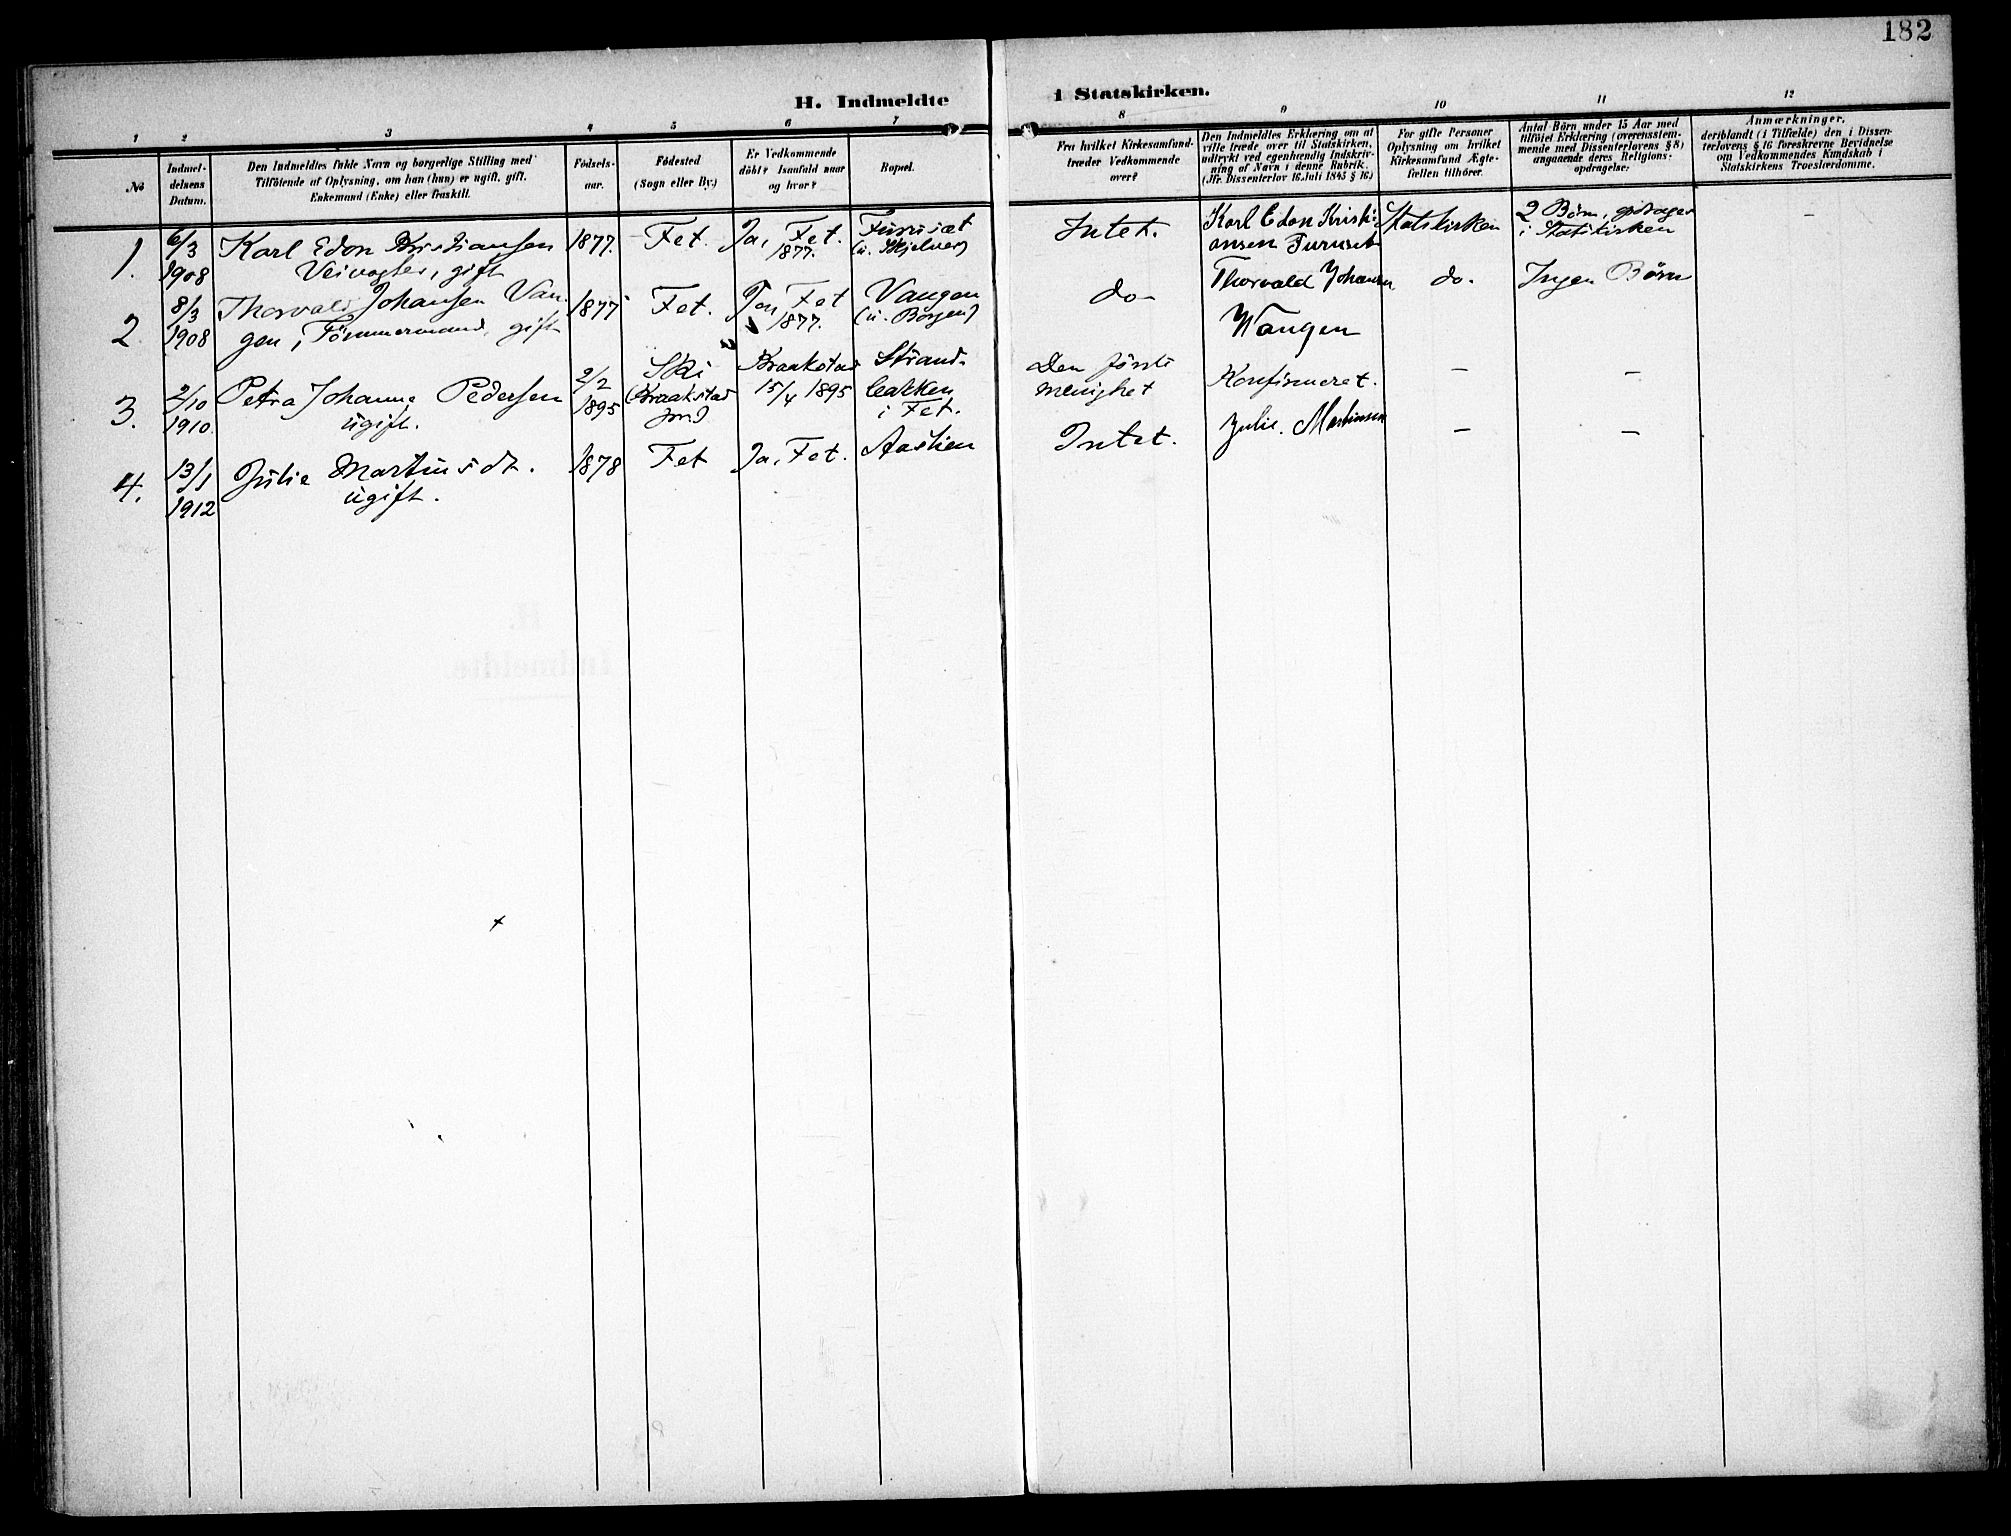 182
H. Indmeldte i Statskirken.
1 2 3 4 5 6 7 8 9 10 11 12
№
Indmel-
delsens
Datum.
Den Indmeldtes fulde Navn og borgerlige Stilling med
Tilföiende af Oplysning, om han (hun) er ugift, gift,
Enkemand (Enke) eller fraskilt.
Födsels-
aar.
Födested
(Sogn eller By.)
Er Vedkommende
döbt? Isaafald naar
og hvor?
Bopæl.
Fra hvilket Kirkesamfund
træder Vedkommende
over?
Den Indmeldtes Erklæring om at
ville træde over til Statskirken,
udtrykt ved egenhændig Indskriv-
ning af Navn i denne Rubrik.
(Jfr. Dissenterlov 16 Juli 1845 § 16)
For gifte Personer
Oplysning om hvilket
Kirkesamfund Ægte-
fællen tilhörer.
Antal Börn under 15 Aar med
tilföiet Erklæring (overensstem-
mende med Dissenterlovens § 8)
angaaende deres Religions-
opdragelse.
Anmærkninger,
deriblandt (i Tilfælde) den i Dissen-
terlovens § 16 foreskrevne Bevidnelse
om Vedkommendes Kundskab i
Statskirkens Troeslærdomme.
1.
6/3
1908
Karl Edon Kristiansen
Veivogter, gift
1877.
Fet.
Ja, Fet.
1877.
Furusæt
(u. Skjelver)
Intet.
Karl Edon Kristi
ansen Furuset
Statskirken
2 Børn, opdrages
i Statskirken
-
2
8/3
1908
Thorvald Johansen Van-
gen, Tömmermand, gift
1877
Fet.
Ja, Fet
1877.
Vangen
(u. Borgen)
do-
Thorvald Johansen
Wangen
do.
Ingen Børn
3.
2/10
1910.
Petra Johanne Pedersen
ugift.
2/2
1895
Ski
(Kraakstad
prg)
Kraakstad
15/4 1895
Strand-
bakken
i Fet.
Den første
menighet
Konfirmeret.
-
-
4.
13/1
1912
Julie Martinsdt.
ugift.
1878
Fet
Ja, Fet.
Aaslien
Intet.
Julie. Martinsen
-
-